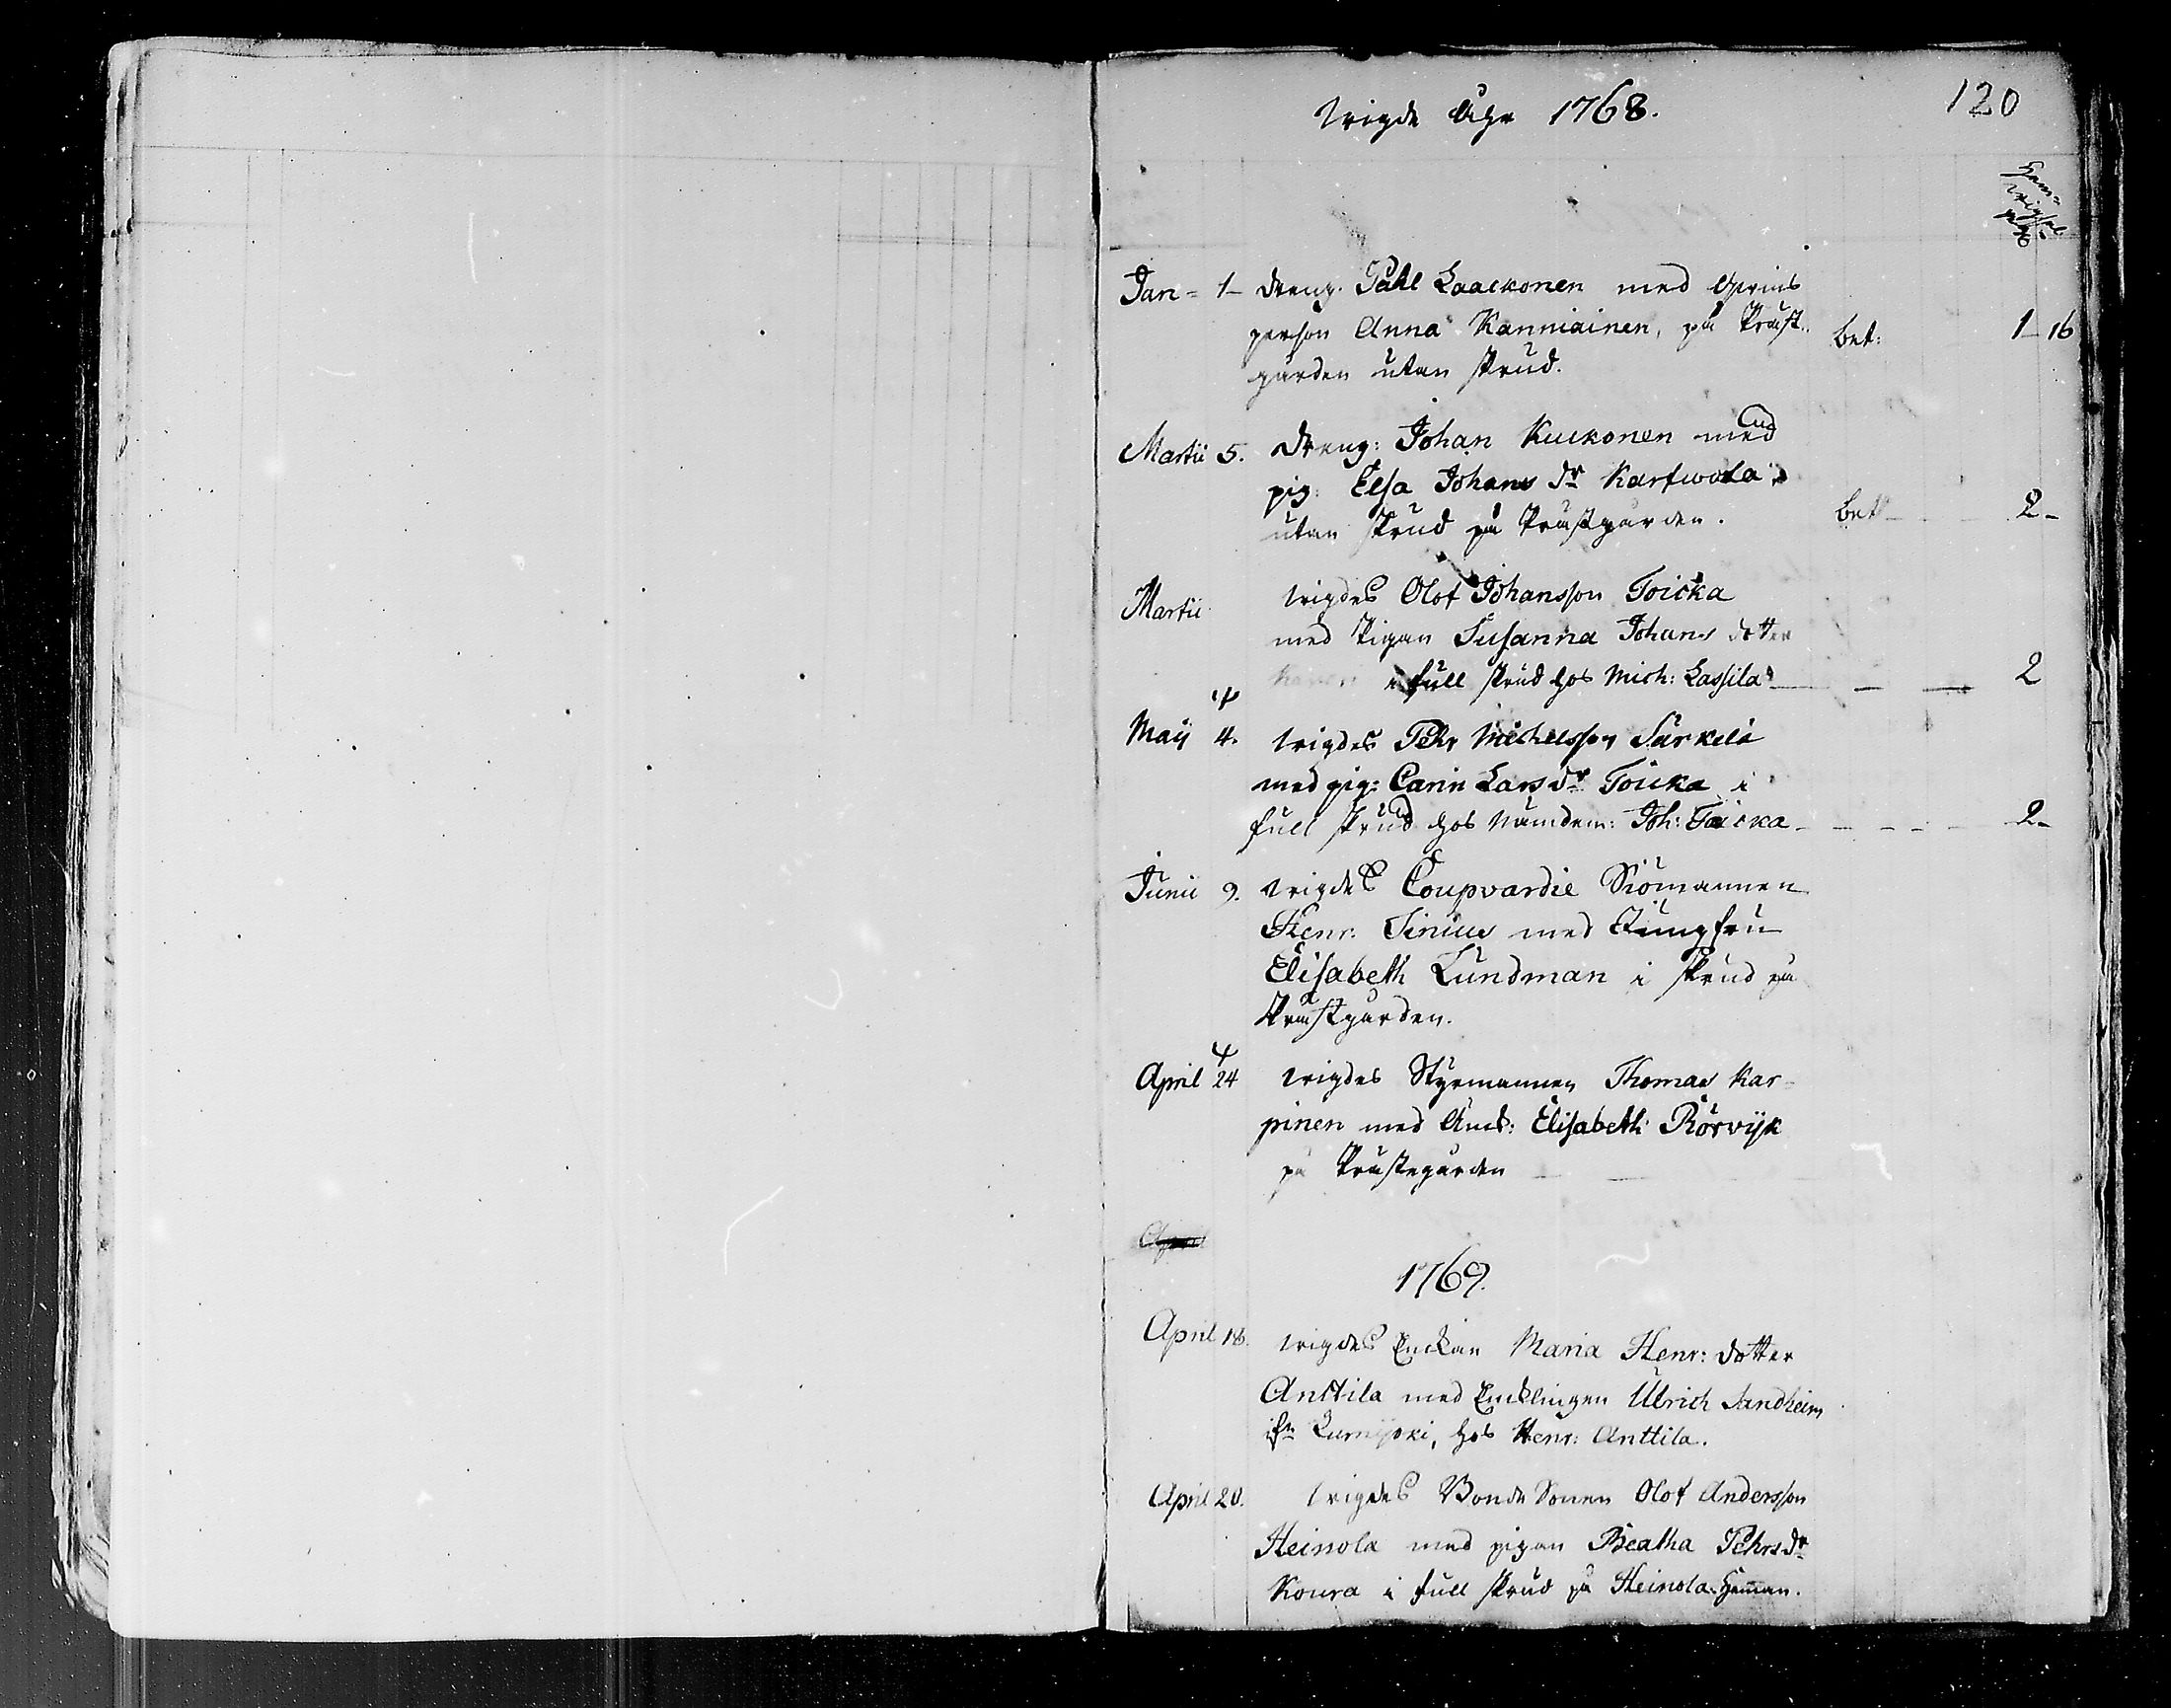 wigde Åhr 1768.
120
Hem=
wigsel
Jan = 1 - Dreng. Påhl Laackonen med
person Anna Kanniainen, på Präst-
bet: 1 - 16
gården utan skrud.
Martii 5. Dreng: Johan Kuckonen med
pig: Elsa Johans dr Karfwola
utan skrud på Prästgården. bet - 2 -
Martii wigdes Olof Johansson Toicka
med Pigan Susanna Johans dotter
i full skrud hos Mich: Lassila - - - 2
Maij 4. wigdes Pehr Michelsson Särkelä
med pig: Carin Lars dr Toicka i
full skrud hos Nämdem: Joh: Toicka - - - - 2 -
Junii 9. wigdes Coupvardie Siömannen
Henr: Jinius med Jungfru
Elisabeth Lundman i skrud på
Prästgården.
April 24 wigdes Styrmannen Thomas Kar-
pinen med Enck: Elisabeth Rörvijk
på Prästegården
April
1769.
April 18. wigdes Enckan Maria Henr: dotter
Anttila med Encklingen Ulrich Sandheim
ifn Lumijoki, hos Henr: Anttila.
April 20. wigdes Bonde Sonen Olof Andersson
Heinola med pigan Beatha Pehrs dr
Koura i full skrud på Heinola Heman.